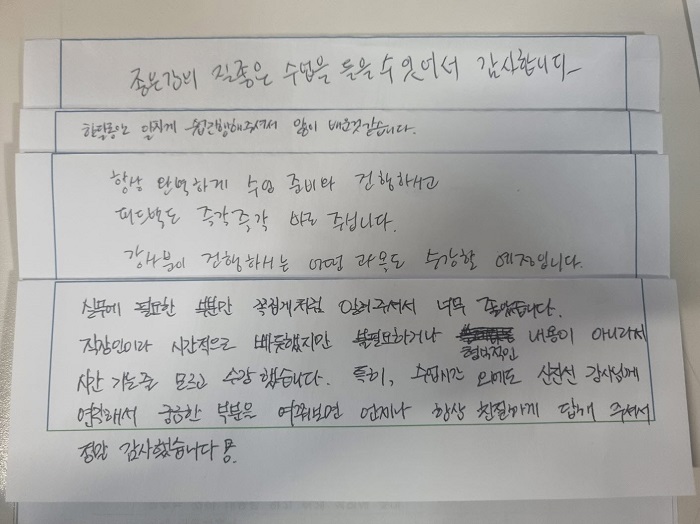 좋은강의 질좋은 수업을 들을수 있어서 감사합니다~
한달동안 알차게 수업진행해주셔서 많이 배운것같습니다.
항상 완벽하게 수업 준비와 진행하시고
피드백도 즉각즉각 바로 주십니다.
강사분이 진행하시는 어떤 과목도 수강할 예정입니다.
실무에 필요한 부분만 꼭집게처럼 알려주셔서 너무 좋았습니다.
직장인이라 시간적으로 빠듯했지만 불필요하거나 형식적인 내용이 아니라서
시간 가는줄 모르고 수강했습니다. 특히, 수업시간 외에도 강사님께
연락해서 궁금한 부분을 여쭤보면 언제나 항상 친절하게 답해 주셔서
정말 감사했습니다